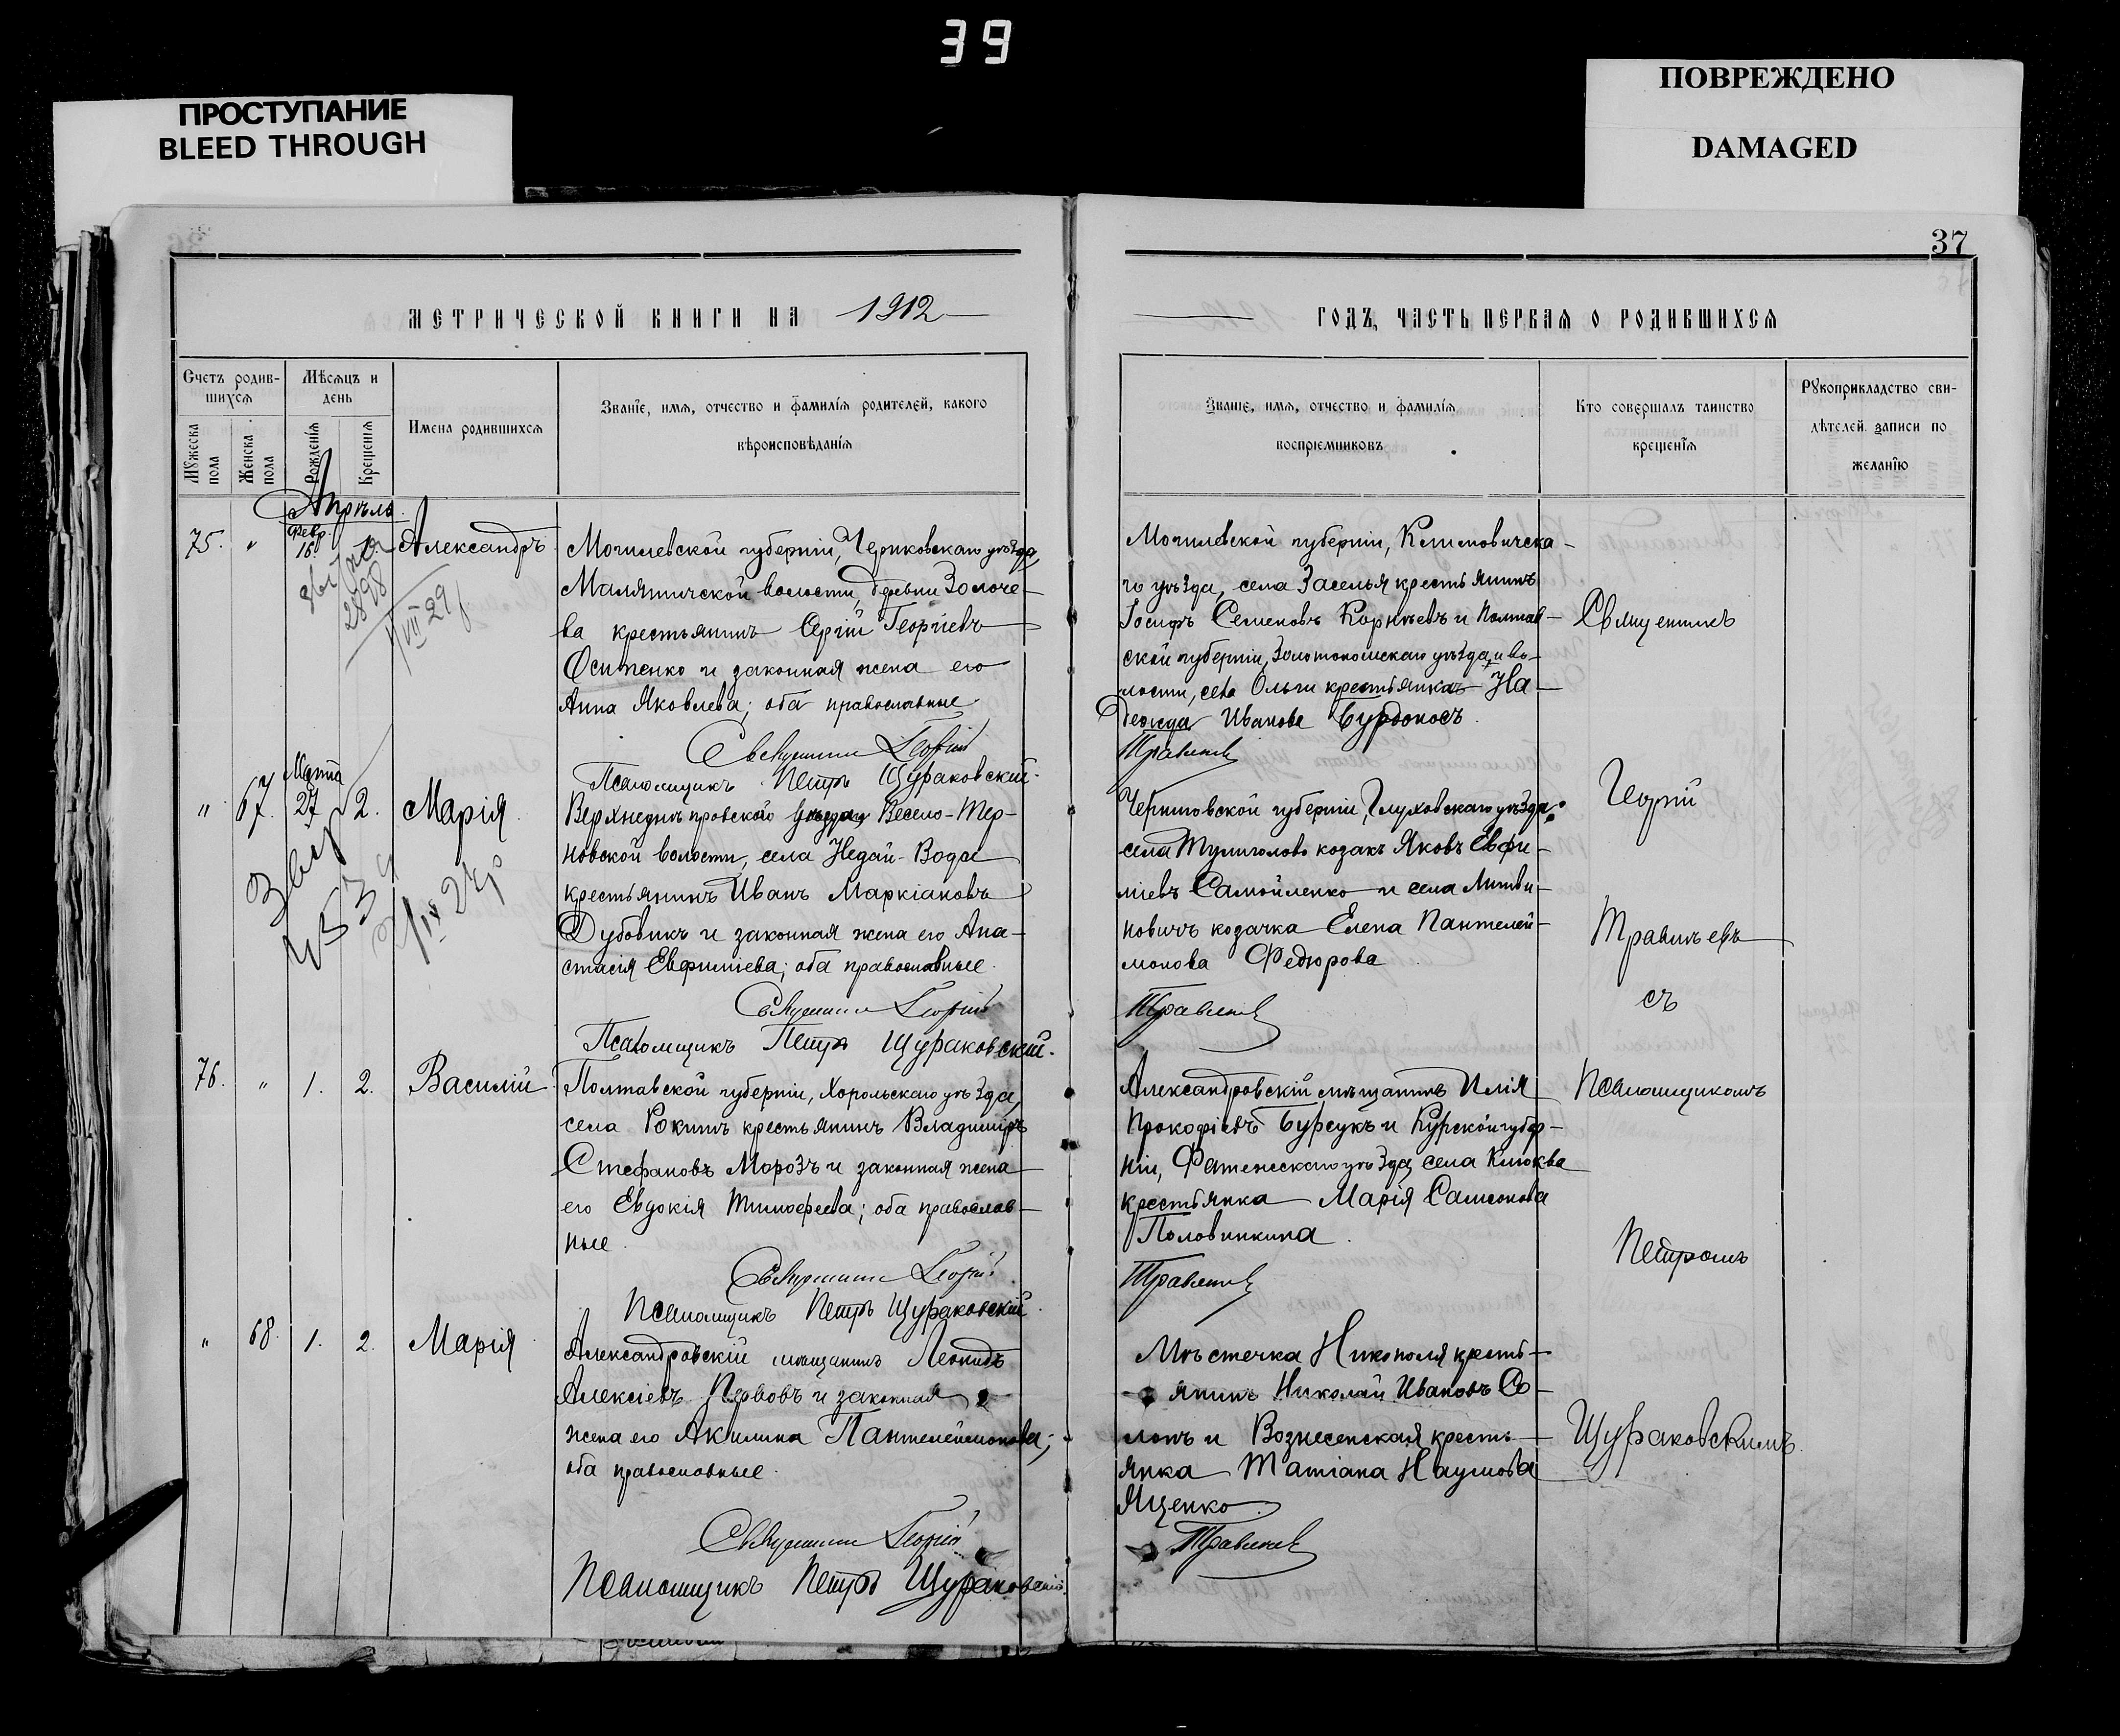 39
ПРОСТУПАНИЕ
BLEED THROUGH
ПОВРЕЖДЕНО
DAMAGED
37
МЕТРИЧЕСКОЙ КНИГИ НА 1912
ГОДЪ, ЧАСТЬ ПЕРВАЯ О РОДИВШИХСЯ
Счетъ родив-
шихся
Мужеска
пола
Женска
пола
Мѣсяцъ и
день
Рожденія
Крещенія
Имена родившихся
Званіе, имя, отчество и фамилія родителей, какого
вѣроисповѣданія
Званіе, имя, отчество и фамилія
воспріемниковъ
Кто совершалъ таинство
крещенія
Рукоприкладство сви-
дѣтелей записи по
желанію
Апрѣль
75. " Февр. 16. 1. Александръ
Могилевской губерніи, Чериковскаго уѣзда,
Малятичской волости, деревни Золоче-
ва крестьянинъ Сергій Георгіевъ
Осипенко и законная жена его
Анна Яковлева; оба православные.
Священникъ Георгій
Псаломщикъ Петръ Щураковскій.
Могилевской губерніи, Климовичска-
го уѣзда, села Заселья крестьянинъ
Іосифъ Семеновъ Корнѣевъ и Полтав-
ской губерніи, Золотоношскаго уѣзда и во-
лости, села Ольги крестьянка На-
дежда Иванова Бурдоносъ.
Травинъ
" 67. Марта 27 2. Марія
Верхнеднѣпровскаго уѣзда, Весело-Тер-
новской волости, села Недай-Вода
крестьянинъ Иванъ Маркіановъ
Дубовикъ и законная жена его Ана-
стасія Евфиміева; оба православные.
Священникъ Георгій
Псаломщикъ Петръ Щураковскій.
Черниговской губерніи, Глуховскаго уѣзда,
села Тулиголово козакъ Яковъ Евфи-
міевъ Самойленко и села Литви-
новичъ козачка Елена Пантелей-
монова Федюрова
76. " 1. 2. Василій
Полтавской губерніи, Хорольскаго уѣзда,
села Рокитъ крестьянинъ Владиміръ
Стефановъ Морозъ и законная жена
его Евдокія Тимофеева; оба православ-
ные.
Священникъ Георгій
Псаломщикъ Петръ Щураковскій.
Александровскій мѣщанинъ Илія
Прокофіевъ Бурсукъ и Курской губер-
ніи, Фатежскаго уѣзда, села Клюква
крестьянка Марія Самсонова
Половинкина.
" 68. 1. 2. Марія
Александровскій мѣщанинъ Леонидъ
Алексіевъ Перловъ и законная
жена его Акилина Пантелеймонова;
оба православные.
Священникъ Георгій
Псаломщикъ Петръ Щураковскій.
Мѣстечка Никополя кресть-
янинъ Николай Ивановъ Со-
ломъ и Вознесенская кресть-
янка Татіана Наумова
Яценко.
Священникъ
Георгій
съ
Псаломщикомъ
Петромъ
Щураковскимъ.